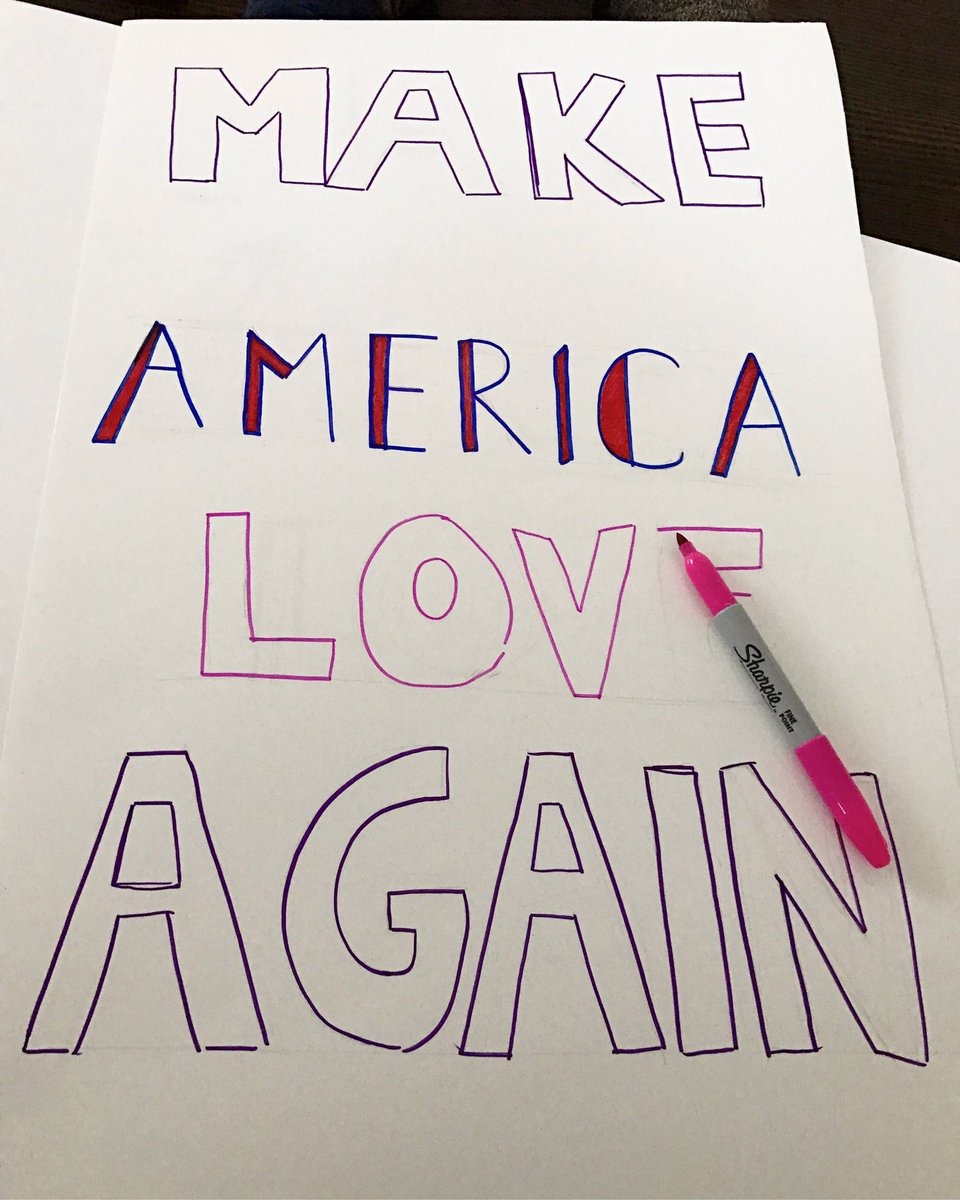 MAKE
AMERICA
LOVE
AGAIN
Sharpie
FINE
POINT